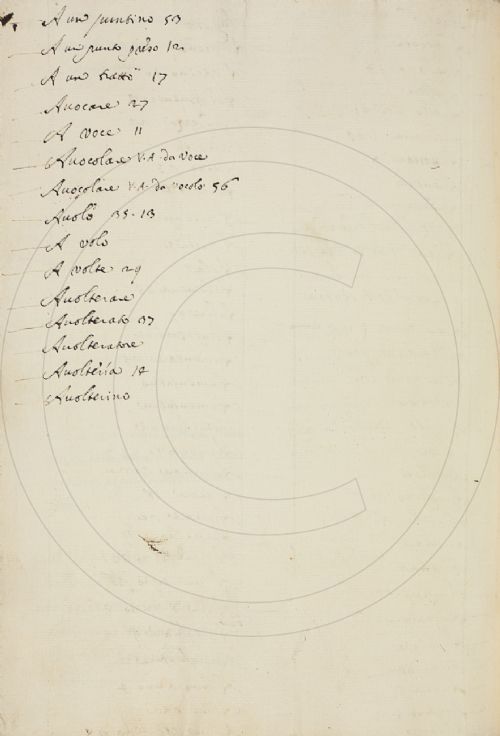 A un puntino 53
A un punto preso 12
A un tratto 17
Auocare 27
A voce 11
Auocolare V. A. da voce
Auocolare V. A. da vocolo 56
Auolo 35. 13
A volo
A volte 29
Auolterare
Auolterato 37
Auolteratore
Auolteria 18
Auolterino